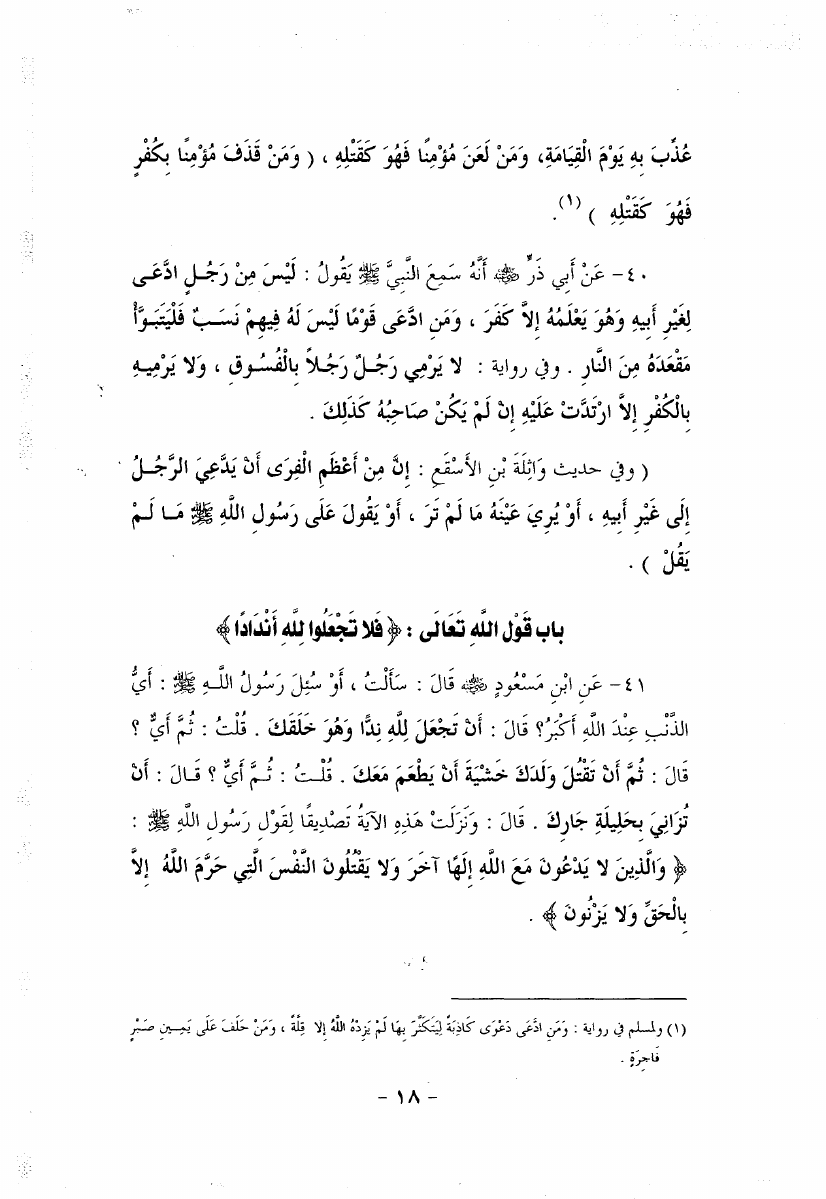 عُذِّبَ بِهِ يَوْمَ الْقِيَامَةِ، وَمَنْ لَعَنَ مُؤْمِنًا فَهُوَ كَقَتْلِهِ ، ( وَمَنْ قَذَفَ مُؤْمِنًا بِكُفْرٍ
فَهُوَ كَقَتْلِهِ ) (١).
٤٠- عَنْ أَبِي ذَرٍّ ﵁ أَنَّهُ سَمِعَ النَّبِيَّ ﷺ يَقُولُ : لَيْسَ مِنْ رَجُـلٍ ادَّعَـى
لِغَيْرِ أَبِيهِ وَهُوَ يَعْلَمُهُ إِلاَّ كَفَرَ ، وَمَنِ ادَّعَى قَوْمًا لَيْسَ لَهُ فِيهِمْ نَسَـبٌ فَلْيَتَبَـوَّأْ
مَقْعَدَهُ مِنَ النَّارِ . وفي رواية : لا يَرْمِي رَجُـلٌ رَجُـلاً بِالْفُسُـوقِ ، وَلا يَرْمِيـهِ
بِالْكُفْرِ إِلاَّ ارْتَدَّتْ عَلَيْهِ إِنْ لَمْ يَكُنْ صَاحِبُهُ كَذَلِكَ .
( وفي حديث وَاثِلَةَ بْنِ الأَسْقَعِ : إِنَّ مِنْ أَعْظَمِ الْفِرَى أَنْ يَدَّعِيَ الرَّجُـلُ
إِلَى غَيْرِ أَبِيهِ ، أَوْ يُرِيَ عَيْنَهُ مَا لَمْ تَرَ ، أَوْ يَقُولَ عَلَى رَسُولِ اللَّهِ ﷺ مَـا لَـمْ
يَقُلْ ) .
باب قَوْلِ اللَّهِ تَعَالَى : ﴿ فَلا تَجْعَلُوا لِلَّهِ أَنْدَادًا ﴾
٤١- عَنِ ابْنِ مَسْعُودٍ ﵁ قَالَ : سَأَلْتُ ، أَوْ سُئِلَ رَسُولُ اللَّـهِ ﷺ : أَيُّ
الذَّنْبِ عِنْدَ اللَّهِ أَكْبَرُ؟ قَالَ : أَنْ تَجْعَلَ لِلَّهِ نِدًّا وَهُوَ خَلَقَكَ . قُلْتُ : ثُمَّ أَيٌّ ؟
قَالَ : ثُمَّ أَنْ تَقْتُلَ وَلَدَكَ خَشْيَةَ أَنْ يَطْعَمَ مَعَكَ . قُلْـتُ : ثُـمَّ أَيٌّ ؟ قَـالَ : أَنْ
تُزَانِيَ بِحَلِيلَةِ جَارِكَ . قَالَ : وَنَزَلَتْ هَذِهِ الآيَةُ تَصْدِيقًا لِقَوْلِ رَسُولِ اللَّهِ ﷺ :
﴿ وَالَّذِينَ لا يَدْعُونَ مَعَ اللَّهِ إِلَهًا آخَرَ وَلا يَقْتُلُونَ النَّفْسَ الَّتِي حَرَّمَ اللَّهُ إِلاَّ
بِالْحَقِّ وَلا يَزْنُونَ ﴾ .
(١) ولمسلم في رواية : وَمَنِ ادَّعَى دَعْوَى كَاذِبَةً لِيَتَكَثَّرَ بِهَا لَمْ يَزِدْهُ اللَّهُ إِلا قِلَّةً ، وَمَنْ حَلَفَ عَلَى يَمِـينِ صَبْرٍ
فَاجِرَةٍ .
- ١٨ -